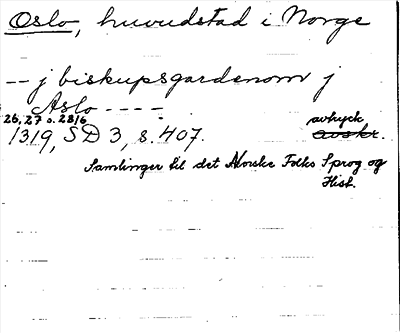 Oslo, huvudstad i Norge
-- j biskupsgardenom j
Aslo ----
26, 27 o. 28/6
1319, SD 3, s. 407. avtryck
avskr.
Samlinger til det Norske Folks Sprog og
Hist.